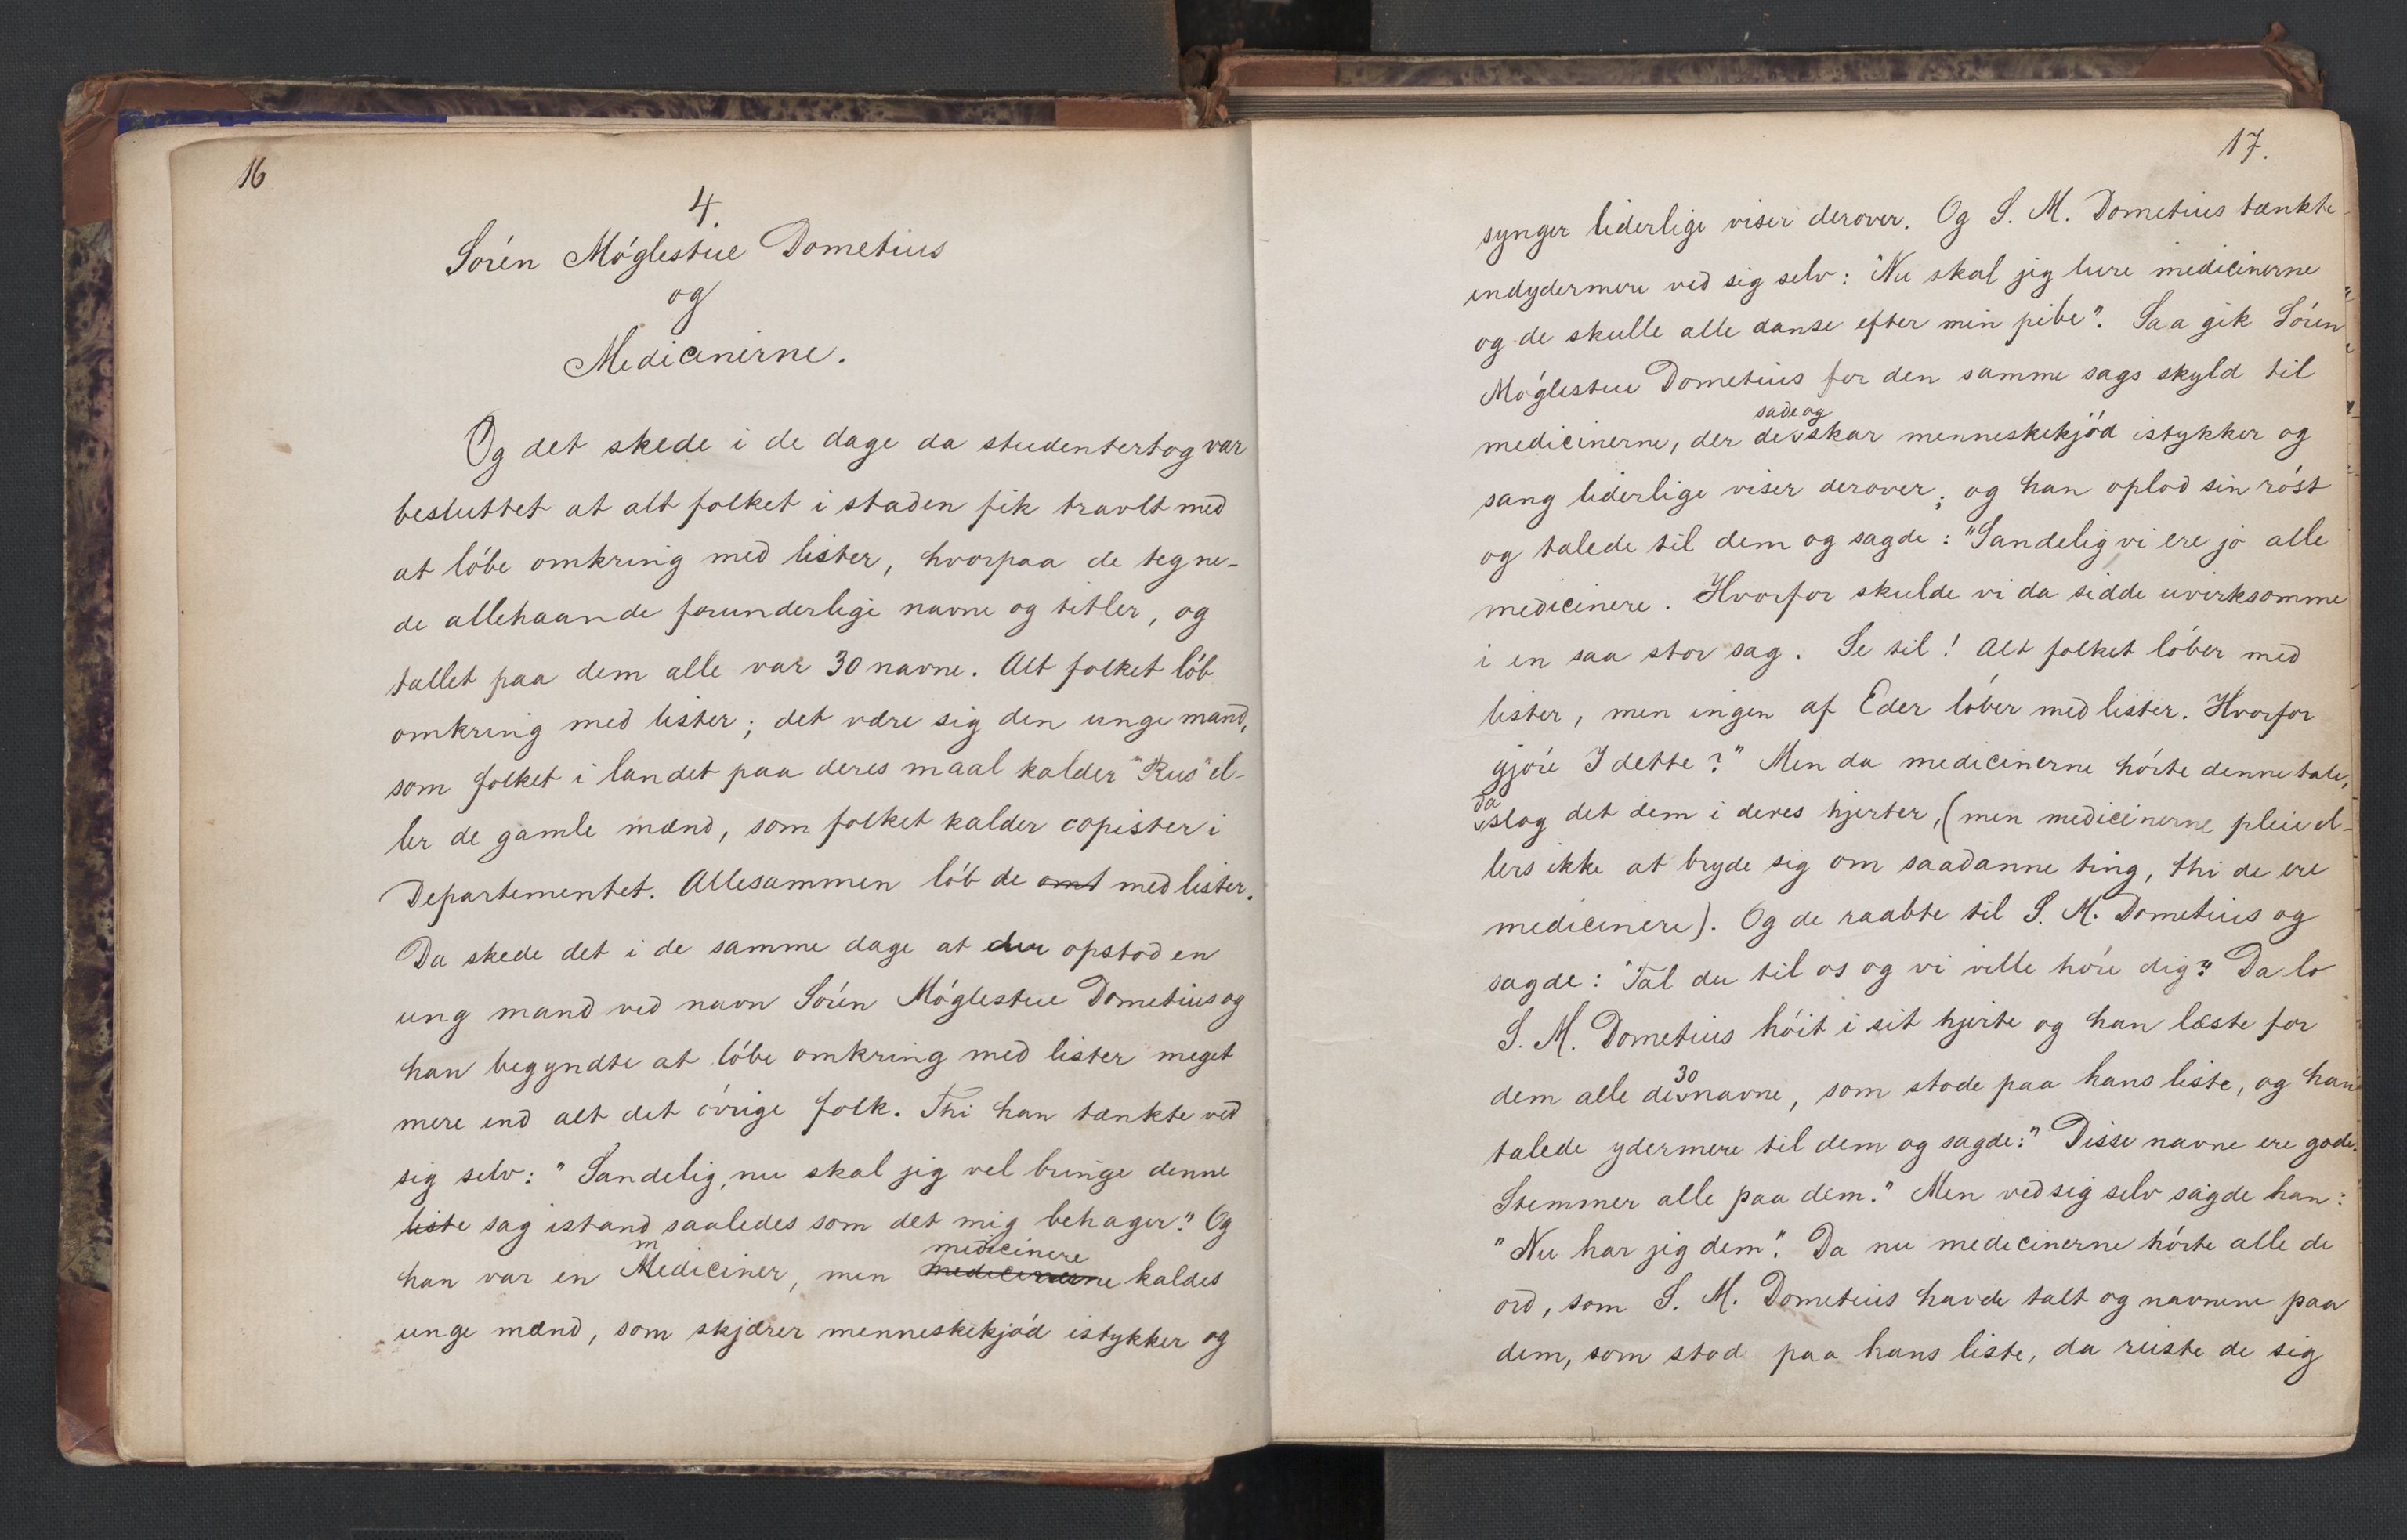 16
4.
Sórén Móglestue Dometius
og
Medicinerne.
Og det skede i de dage da studentertog var
besluttet at alt folket i staden fik travlt med
at lóbe omkring med lister, hvorpaa de tegne-
de allehaande forunderlige navne og titler, og
tallet paa dem alle var 30 navne. Alt folket lób
omkring med lister; det være sig den unge mand,
som folket i landet paa deres maal kalder "Rus" el-
ler de gamle mænd, som folket kalder copister i
Departementet. Allesammen lób de omt med lister.
Da skede det i de samme dage at der opstod en
ung mand ved navn Sórén Móglestue Dometius og
han begyndte at lóbe omkring med lister meget
mere end alt det óvrige folk. Thi han tænkte ved
sig selv: "Sandelig, nu skal jig vel bringe denne
liste sag istand saaledes som det mig behager." Og
m medicinere
han var en Mediciner, men medicinerne kaldes
unge mænd, som skjærer menneskekjód istykker og
17.
synger liderlige viser derover. Og S. M. Dometius tænkte
endydermere ved sig selv: "Nu skal jig lure medicinerne
og de skulle alle danse efter min pibe". Saa gik Sórén
Móglestue Dometius for den samme sags skyld til
sade og
medicinerne, der de skar menneskekjód istykker og
sang liderlige viser derover; og han oplod sin róst
og talede til dem og sagde: "Sandelig vi ere jo alle
medicinere. Hvorfor skulde vi da sidde uvirksomme
i en saa stor sag. Se til! Alt folket lóber med
lister, men ingen af Eder lóber med lister. Hvorfor
gjóre I dette?" Men da medicinerne hórte denne tale,
da
slog det dem i deres hjerter, (men medicinerne pleie el-
lers ikke at bryde sig om saadanne ting, thi de ere
medicinere). Og de raabte til S. M. Dometius og
sagde: "Tal du til os og vi ville hóre dig". Da lo
S. M. Dometius hóit i sit hjerte og han læste for
30
dem alle de navne, som stode paa hans liste, og han
talede ydermere til dem og sagde: "Disse navne ere gode.
Stemmer alle paa dem." Men ved sig selv sagde han:
"Nu har jig dem". Da nu medicinerne hórte alle de
ord, som S. M. Dometius havde talt og navnene paa
dem, som stod paa hans liste, da reiste de sig